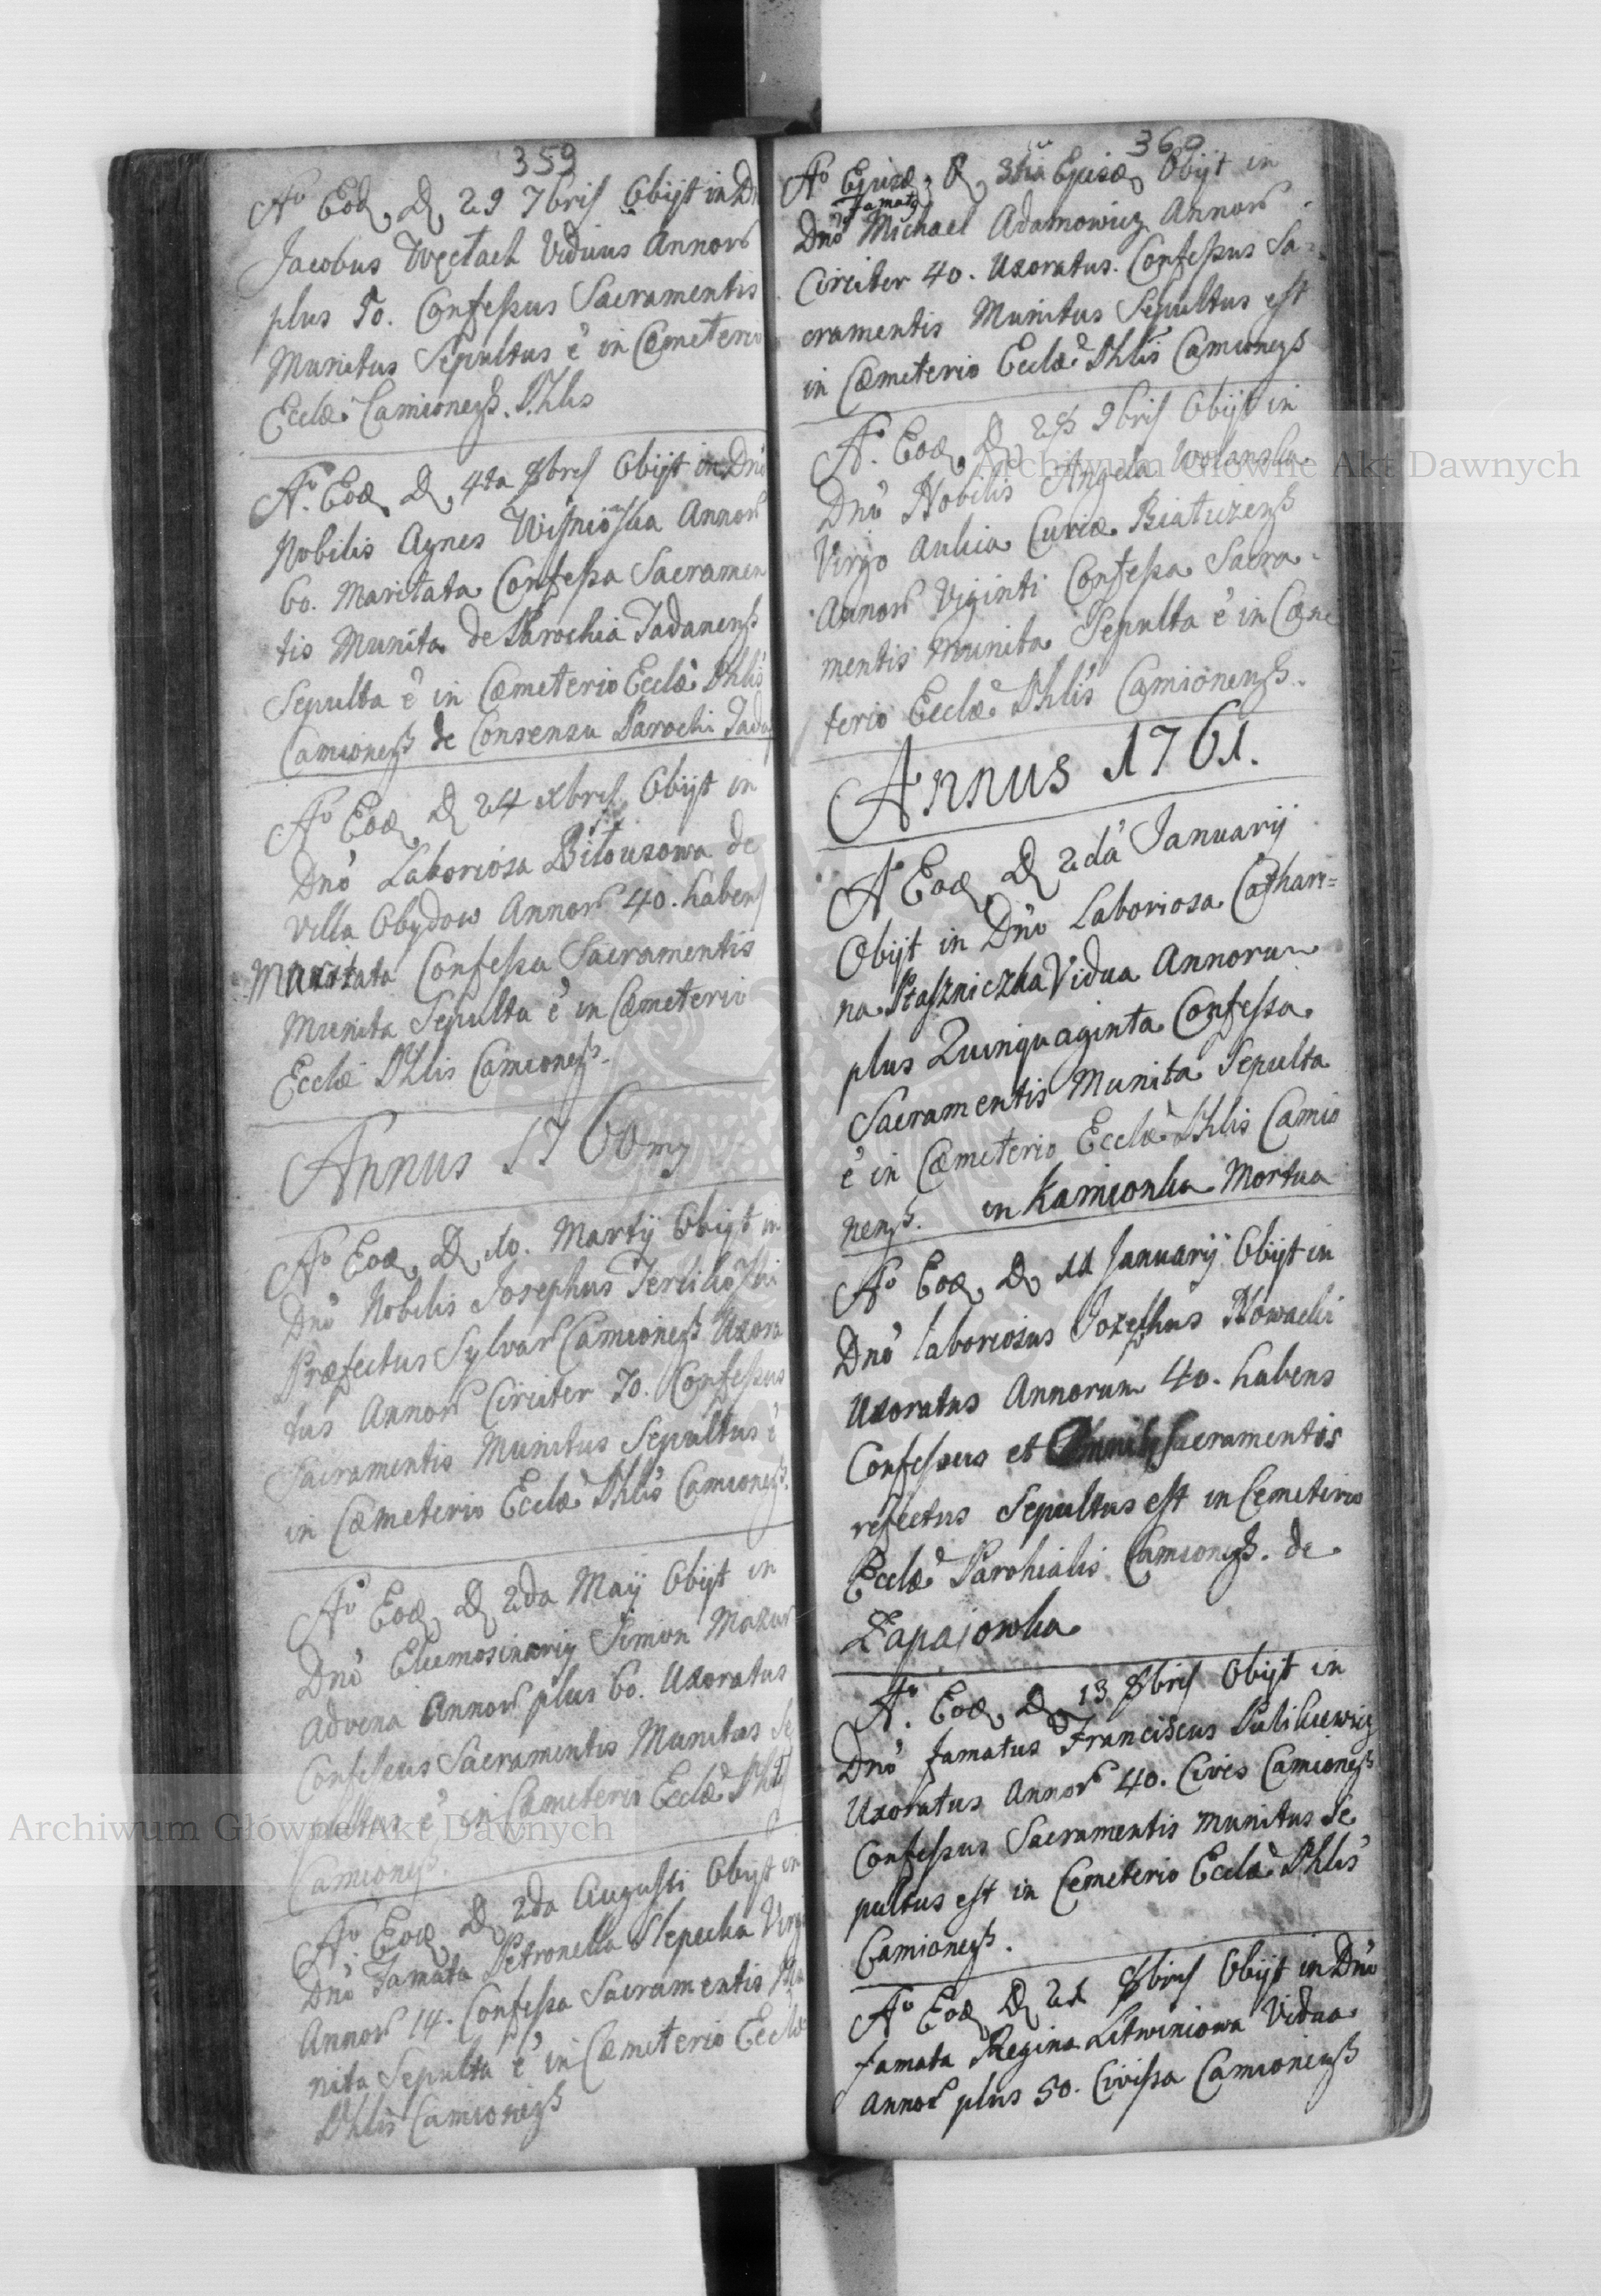 359
Aō Eod, D, 29 7bris Obijt in Dn
Jacobus Viduus Annor
plus 50. Confessus Sacramentis
Munitus Sepultus ē in Cæmeterio
Ecclæ Camionens. Phlis
Aō Eod, D, 4ta 8bris Obijt in Dnō
Nobilis Agnes Wisnioska Annor
60. Maritata Confessa Sacramen
tis Munita de Parochia Jadanens
Sepulta ē in Cæmeterio Ecclæ Phlis
Camionens de Consensu Parochi
Aō Eod, D 24 xbris Obijt in
Dnō Laboriosa Bitousowa de
Villa Obydow Annor 40. habens
Maritata Confessa Sacramentis
Munita Sepulta ē in Cæmeterio
Ecclæ Phlis Camionens.
Annus 1760mg
Aō Eod, D, 10. Martij Obijt in
Dnō Nobilis Josephus
Præfectus Sylvar Camionens Uxora
tus Annor Circiter 70. Confessus
Sacramentis Munitus Sepultus ē
in Cæmeterio Ecclæ Phlis Camionens.
Aō Eod, D 2da Maij Obijt in
Dnō Simon Mazur
Advena Annor plus 60. Uxoratus
Confessus Sacramentis Munitus Se
pultus ē in Cæmeterio Ecclæ Phlis
Camionens.
Aō Eod, D, 2da Augusti Obijt in
Dnō Famata Petronella Slepecka Virgo
Annor 14. Confessa Sacramentis Mu
nita Sepulta ē in Cæmeterio Ecclæ
Phlis Camionens
360
Aō Ejusd, D, 3tia Ejusd, Obijt in
Famatg
Dnō Michael Adamowicz Annor
Circiter 40. Uxoratus. Confessus Sa-
cramentis Munitus Sepultus est
in Cæmeterio Ecclæ Phlis Camionens
Aō. Eod, D, 9bris Obijt in
Dnō Nobilis Angela Wolanska
Virgo Aulica Curiæ
Annor Viginti Confessa Sacra-
mentis Munita Sepulta ē in Cæme
terio Ecclæ Phlis Camionens.
Annus 1761.
A Eod, D 2da Januarij
Obijt in Dnō Laboriosa Cathari=
na Ptaszniczka Vidua Annorum
plus Quinquaginta Confessa
Sacramentis Munita Sepulta
ē in Cæmeterio Ecclæ Phlis Camio
nens. in Kamionka Mortua
Aō Eod, D, 11 Januarij Obijt in
Dnō laboriosus Jozephus Nowacki
Uxoratus Annorum 40. habens
Confessus et Sacramentis
refectus Sepultus est in Cemeterio
Ecclæ Parohialis Camionens. de
Łapajowka
Aō. Eod, D, 13 8bris Obijt in
Dnō famatus Franciscus Pulikiewicz
Uxoratus Annor 40. Civis Camionens
Confessus Sacramentis munitus Se
pultus est in Cemeterio Ecclæ Phlis
Camionens.
Aō Eod, D, 21 8bris Obijt in Dnō
famata Regina Litwiniowa Vidua
Annor plus 50. Civissa Camionens
Archiwum Główne Akt Dawnych
Archiwum Główne Akt Dawnych